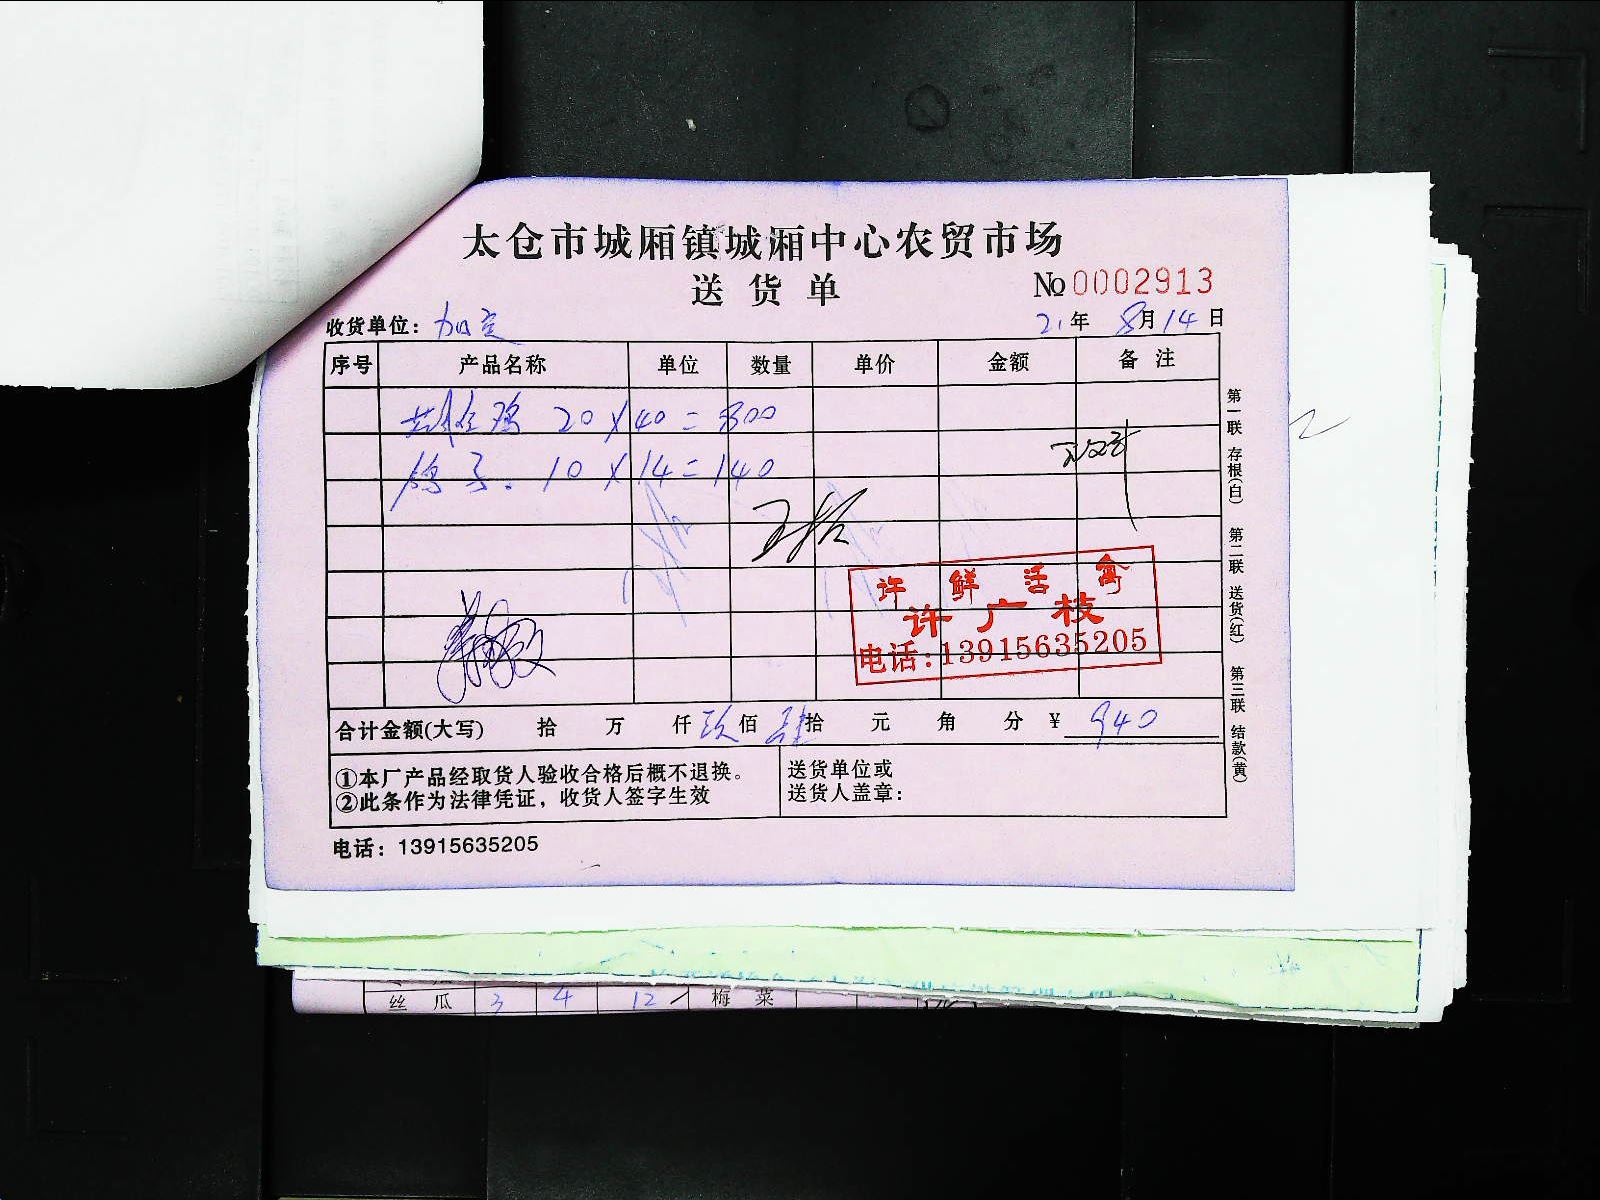 太仓市城厢镇城厢中心农贸市场
送货单
№ 0002913
收货单位：加定
21年 8月14日
序号 产品名称 单位 数量 单价 金额 备注
鸡 20×40=800
鸽子. 10×14=140
许鲜活禽
许广枝
电话:13915635205
合计金额(大写) 拾 万 仟 玖佰 肆拾 元 角 分 ¥ 940
①本厂产品经取货人验收合格后概不退换。
②此条作为法律凭证，收货人签字生效
送货单位或
送货人盖章：
电话：13915635205
第一联 存根(白) 第二联 送货(红) 第三联 结款(黄)
丝瓜 3 4 12 梅菜